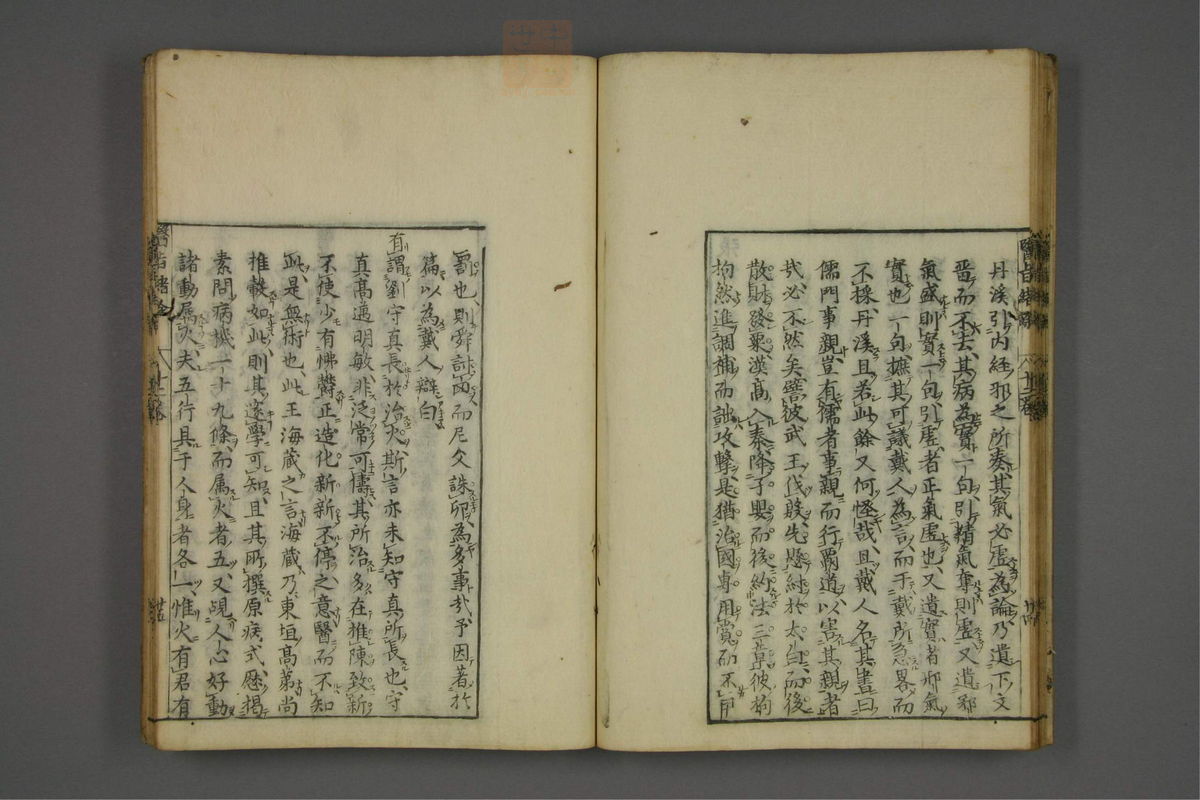 丹溪引内経邪之所湊其氣必虛為論乃遺下文
畱而不去其病為實一句引精氣奪則虛又遺邪
氣盛則實一句引虛者正氣虛也又遺實者邪氣
實也一句摭其可議戴人為言而于戴所急畧而
不採丹溪且若此餘又何怪哉且戴人名其書曰
儒門事親豈有儒者事親而行覇道以害其親者
哉必不然矣譬彼武王伐殷先懸紂於太白而後
散財發粟漢髙入秦降子嬰而後約法三章彼拘
拘然進調補而詘攻擊是猶治國專用賞而不用
罰也則舜討凶而尼父誅卯為多事哉予因著於
篇以為戴人辯白
有謂劉守真長於治火斯言亦未知守真所長也守
真髙邁明敏非泛常可儔其所治多在推陳致新
不使少有怫欝正造化新新不停之意醫而不知
此是無術也此王海藏之言海藏乃東垣髙苐尚
推轂如此則其邃學可知且其所撰原病式歷揭
素問病機一十九條而属火者五又覘人心好動
諸動属火夫五行具于人身者各一惟火有君有